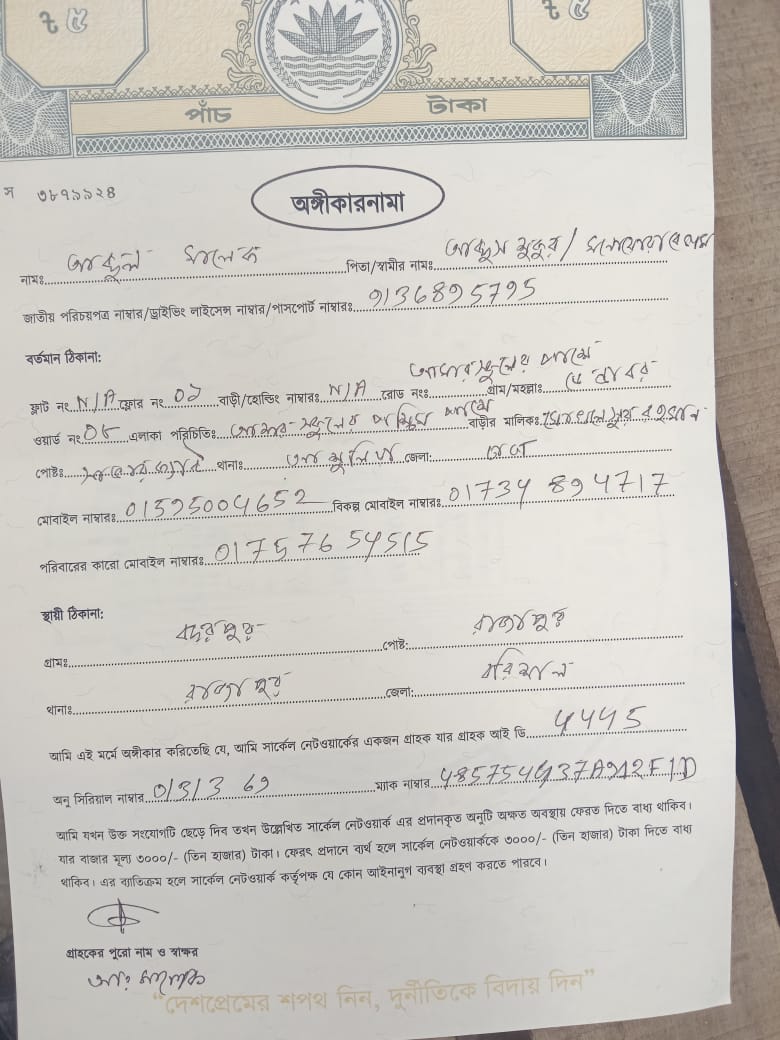 ৳ ৫ ৳ ৫
পাঁচ টাকা
স ৩৮৭৯৯২৪
অঙ্গীকারনামা
নামঃ আব্দুল মালেক পিতা/স্বামীর নামঃ
জাতীয় পরিচয়পত্র নাম্বার/ড্রাইভিং লাইসেন্স নাম্বার/পাসপোর্ট নাম্বারঃ 9136895795
বর্তমান ঠিকানা:
ফ্লাট নং N/A ফ্লোর নং 02 বাড়ী/হোল্ডিং নাম্বারঃ N/A রোড নংঃ গ্রাম/মহল্লাঃ
ওয়ার্ড নং 05 এলাকা পরিচিতিঃ বাড়ীর মালিকঃ
পোষ্টঃ থানাঃ জেলা:
মোবাইল নাম্বারঃ 01595004652 বিকল্প মোবাইল নাম্বারঃ 01734 894717
পরিবারের কারো মোবাইল নাম্বারঃ 01757654515
স্থায়ী ঠিকানা:
গ্রামঃ পোষ্ট: রাজাপুর
থানাঃ রাজাপুর জেলা: বরিশাল
আমি এই মর্মে অঙ্গীকার করিতেছি যে, আমি সার্কেল নেটওয়ার্কের একজন গ্রাহক যার গ্রাহক আই ডি 4445
অনু সিরিয়াল নাম্বার 01313 69 ম্যাক নাম্বার
আমি যখন উক্ত সংযোগটি ছেড়ে দিব তখন উল্লেখিত সার্কেল নেটওয়ার্ক এর প্রদানকৃত অনুটি অক্ষত অবস্থায় ফেরত দিতে বাধ্য থাকিব।
যার বাজার মূল্য ৩০০০/- (তিন হাজার) টাকা। ফেরৎ প্রদানে ব্যর্থ হলে সার্কেল নেটওয়ার্ককে ৩০০০/- (তিন হাজার) টাকা দিতে বাধ্য
থাকিব। এর ব্যাতিক্রম হলে সার্কেল নেটওয়ার্ক কর্তৃপক্ষ যে কোন আইনানুগ ব্যবস্থা গ্রহণ করতে পারবে।
গ্রাহকের পুরো নাম ও স্বাক্ষর
আঃ মালেক
“দেশপ্রেমের শপথ নিন, দুর্নীতিকে বিদায় দিন”